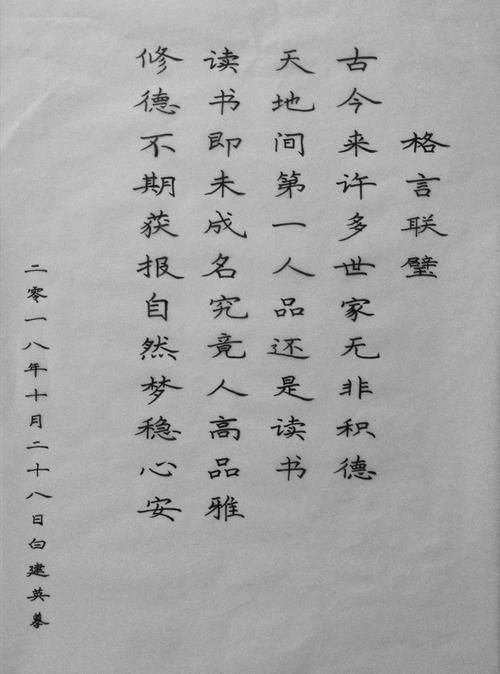 格言联璧
古今来许多世家无非积德
天地间第一人品还是读书
读书即未成名究竟人高品雅
修德不期获报自然梦稳心安
二零一八年十月二十八日白建英摹